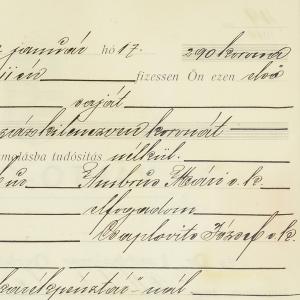 január hó 17. 290 korona
fizessen Ön ezen első
saját
száz kilenczven koronát
tudósitás nélkül.
Ambrus Mári s. k.
elfogadom
Czaplovits József s. k.
takarékpénztár"-nál